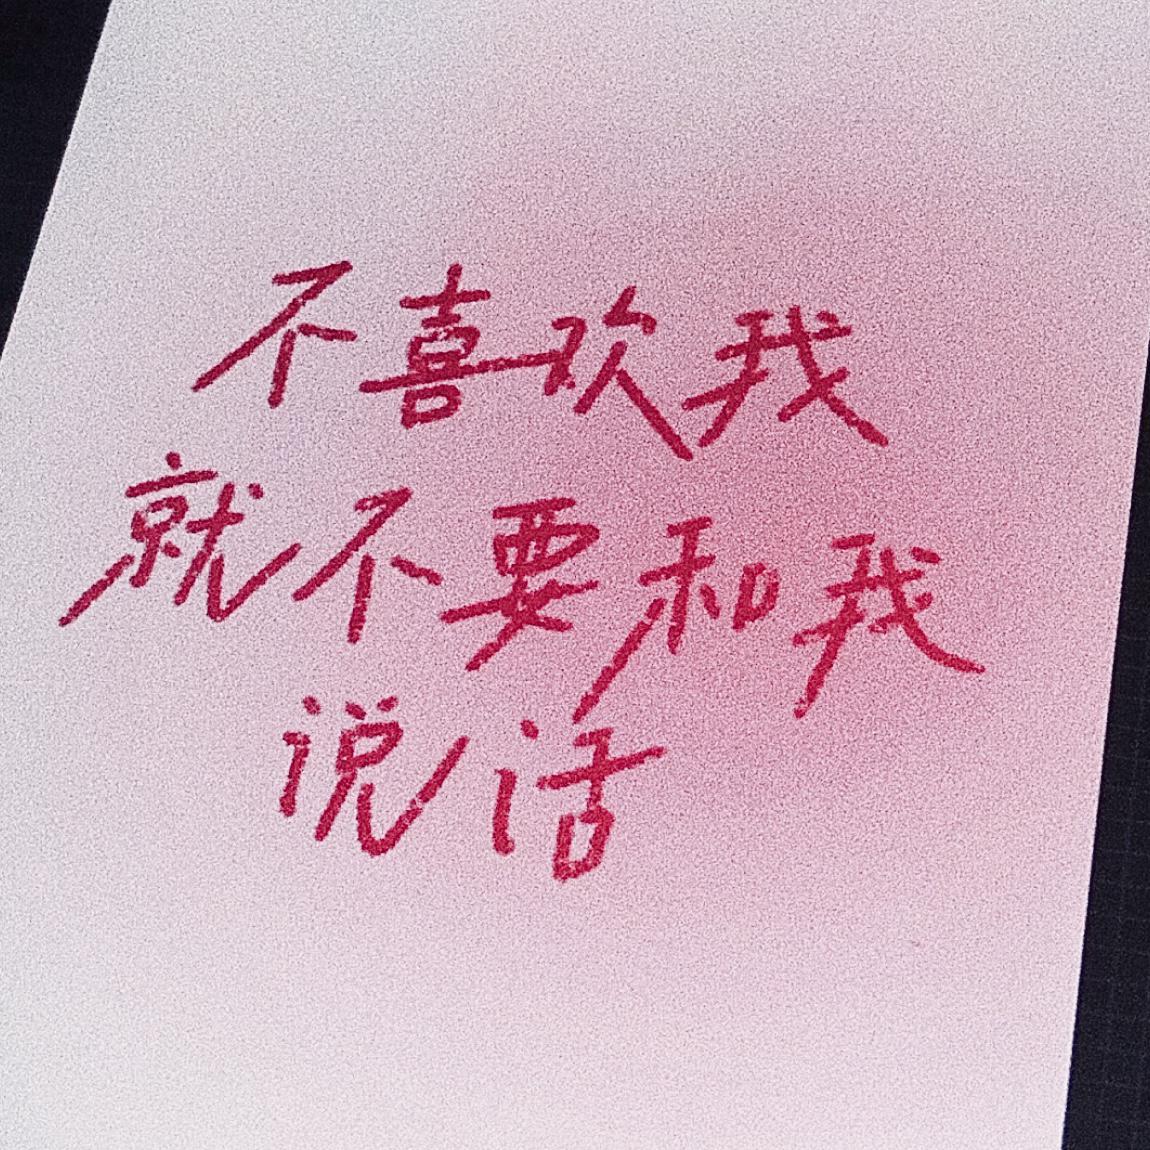 不喜欢我
就不要和我
说话